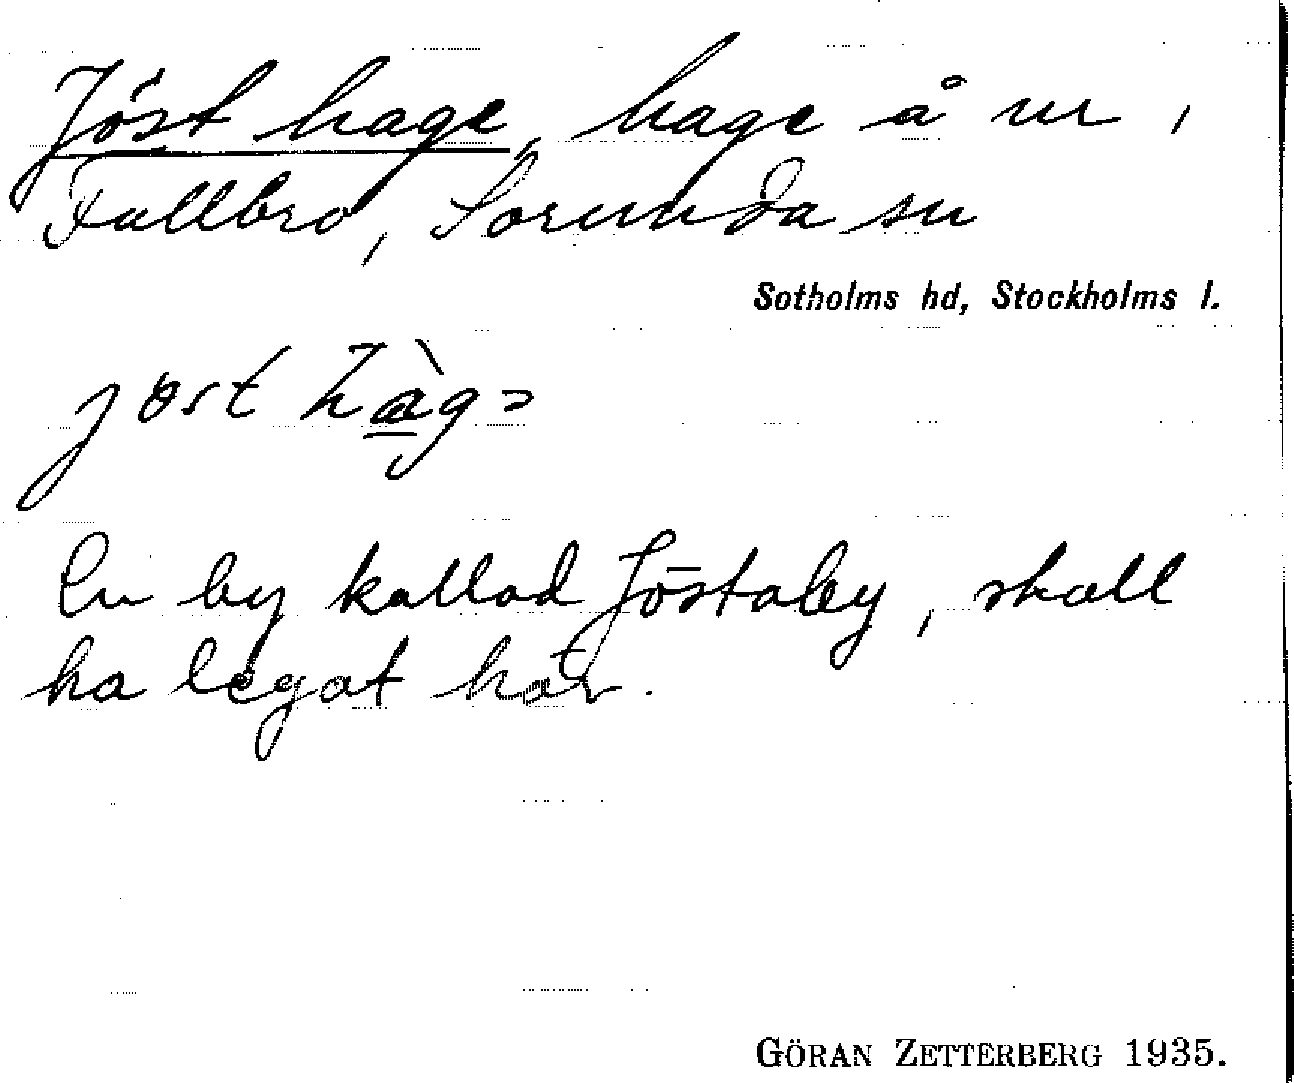 Jöst hage, hage å nr 1
Fullbro, Sorunda sn
Sotholms hd, Stockholms l.
jøst hàgə
En by kallad Jöstaby, skall
ha legat här.
GÖRAN ZETTERBERG 1935.